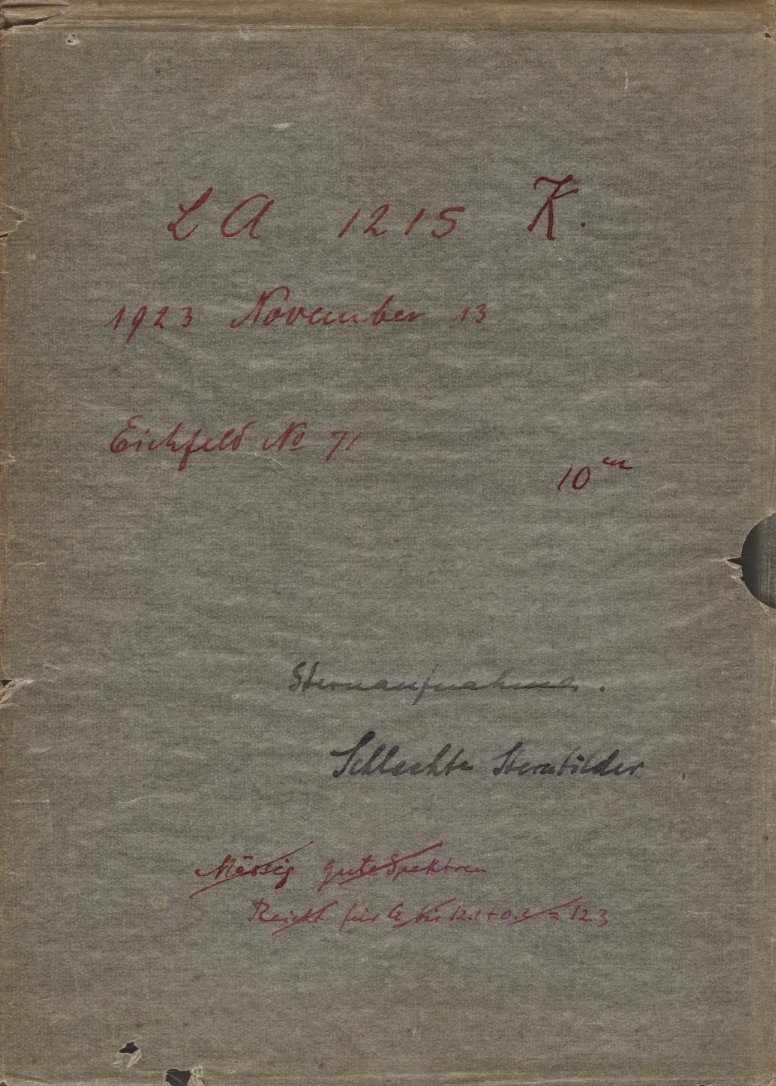 LA 1215 K.
1923 November 13
Eichfeld No 71
10 m
Sternaufnahme.
Schlechte Sternbilder
Mässig gute Spektren
Reicht für bis 12.1 + 0.2 = 12.3